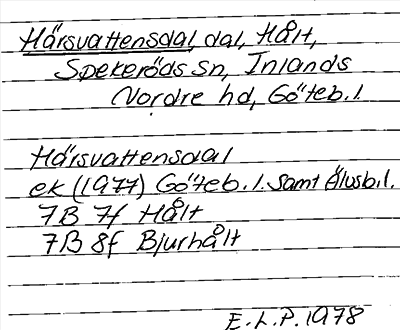 Härsvattensdal, dal, Hålt,
Spekeröds sn, Inlands
Nordre hd, Göteb.l.
Härsvattensdal
ek (1977) Göteb.l. samt Älvsb.l.
7B 7f Hålt
7B 8f Bjurhålt
E.L.P. 1978